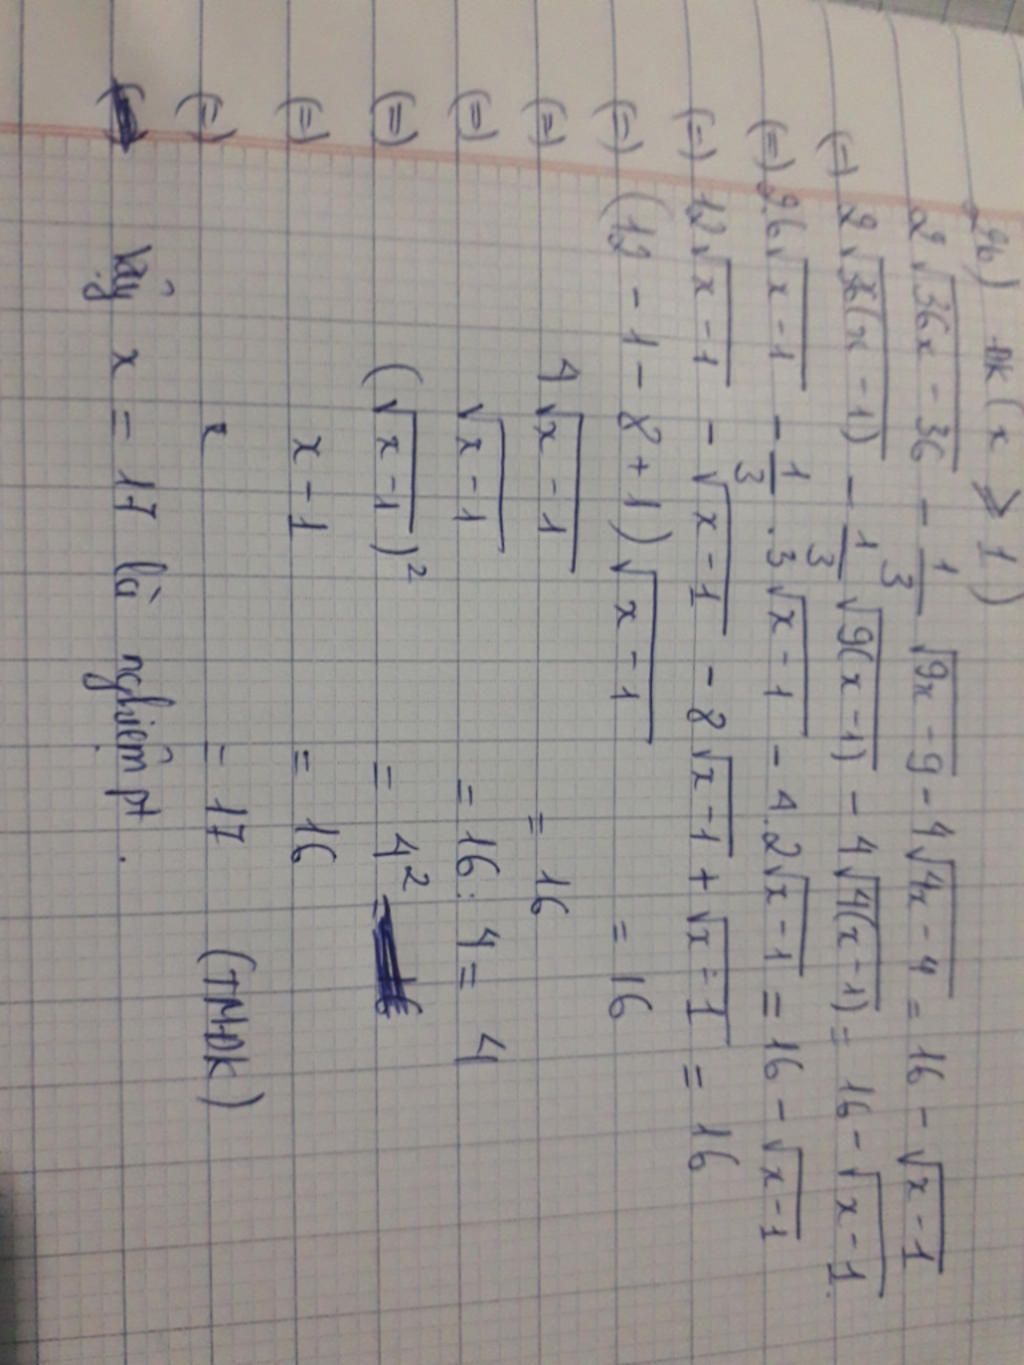 2b) ĐK (x ⩾ 1)
2√36x - 36 - 1/3 √9x - 9 - 4√4x - 4 = 16 - √x - 1
(=) 2√36(x - 1) - 1/3 √9(x - 1) - 4√4(x - 1) = 16 - √x - 1
(=) 2.6√x - 1 - 1/3 . 3√x - 1 - 4.2√x - 1 = 16 - √x - 1
(=) 12√x - 1 - √x - 1 - 8√x - 1 + √x - 1 = 16
(=) (12 - 1 - 8 + 1)√x - 1 = 16
(=) 4√x - 1 = 16
(=) √x - 1 = 16 : 4 = 4
(=) (√x - 1)² = 4²
(=) x - 1 = 16
(=) x = 17 (TMĐK)
Vậy x = 17 là nghiệm pt.